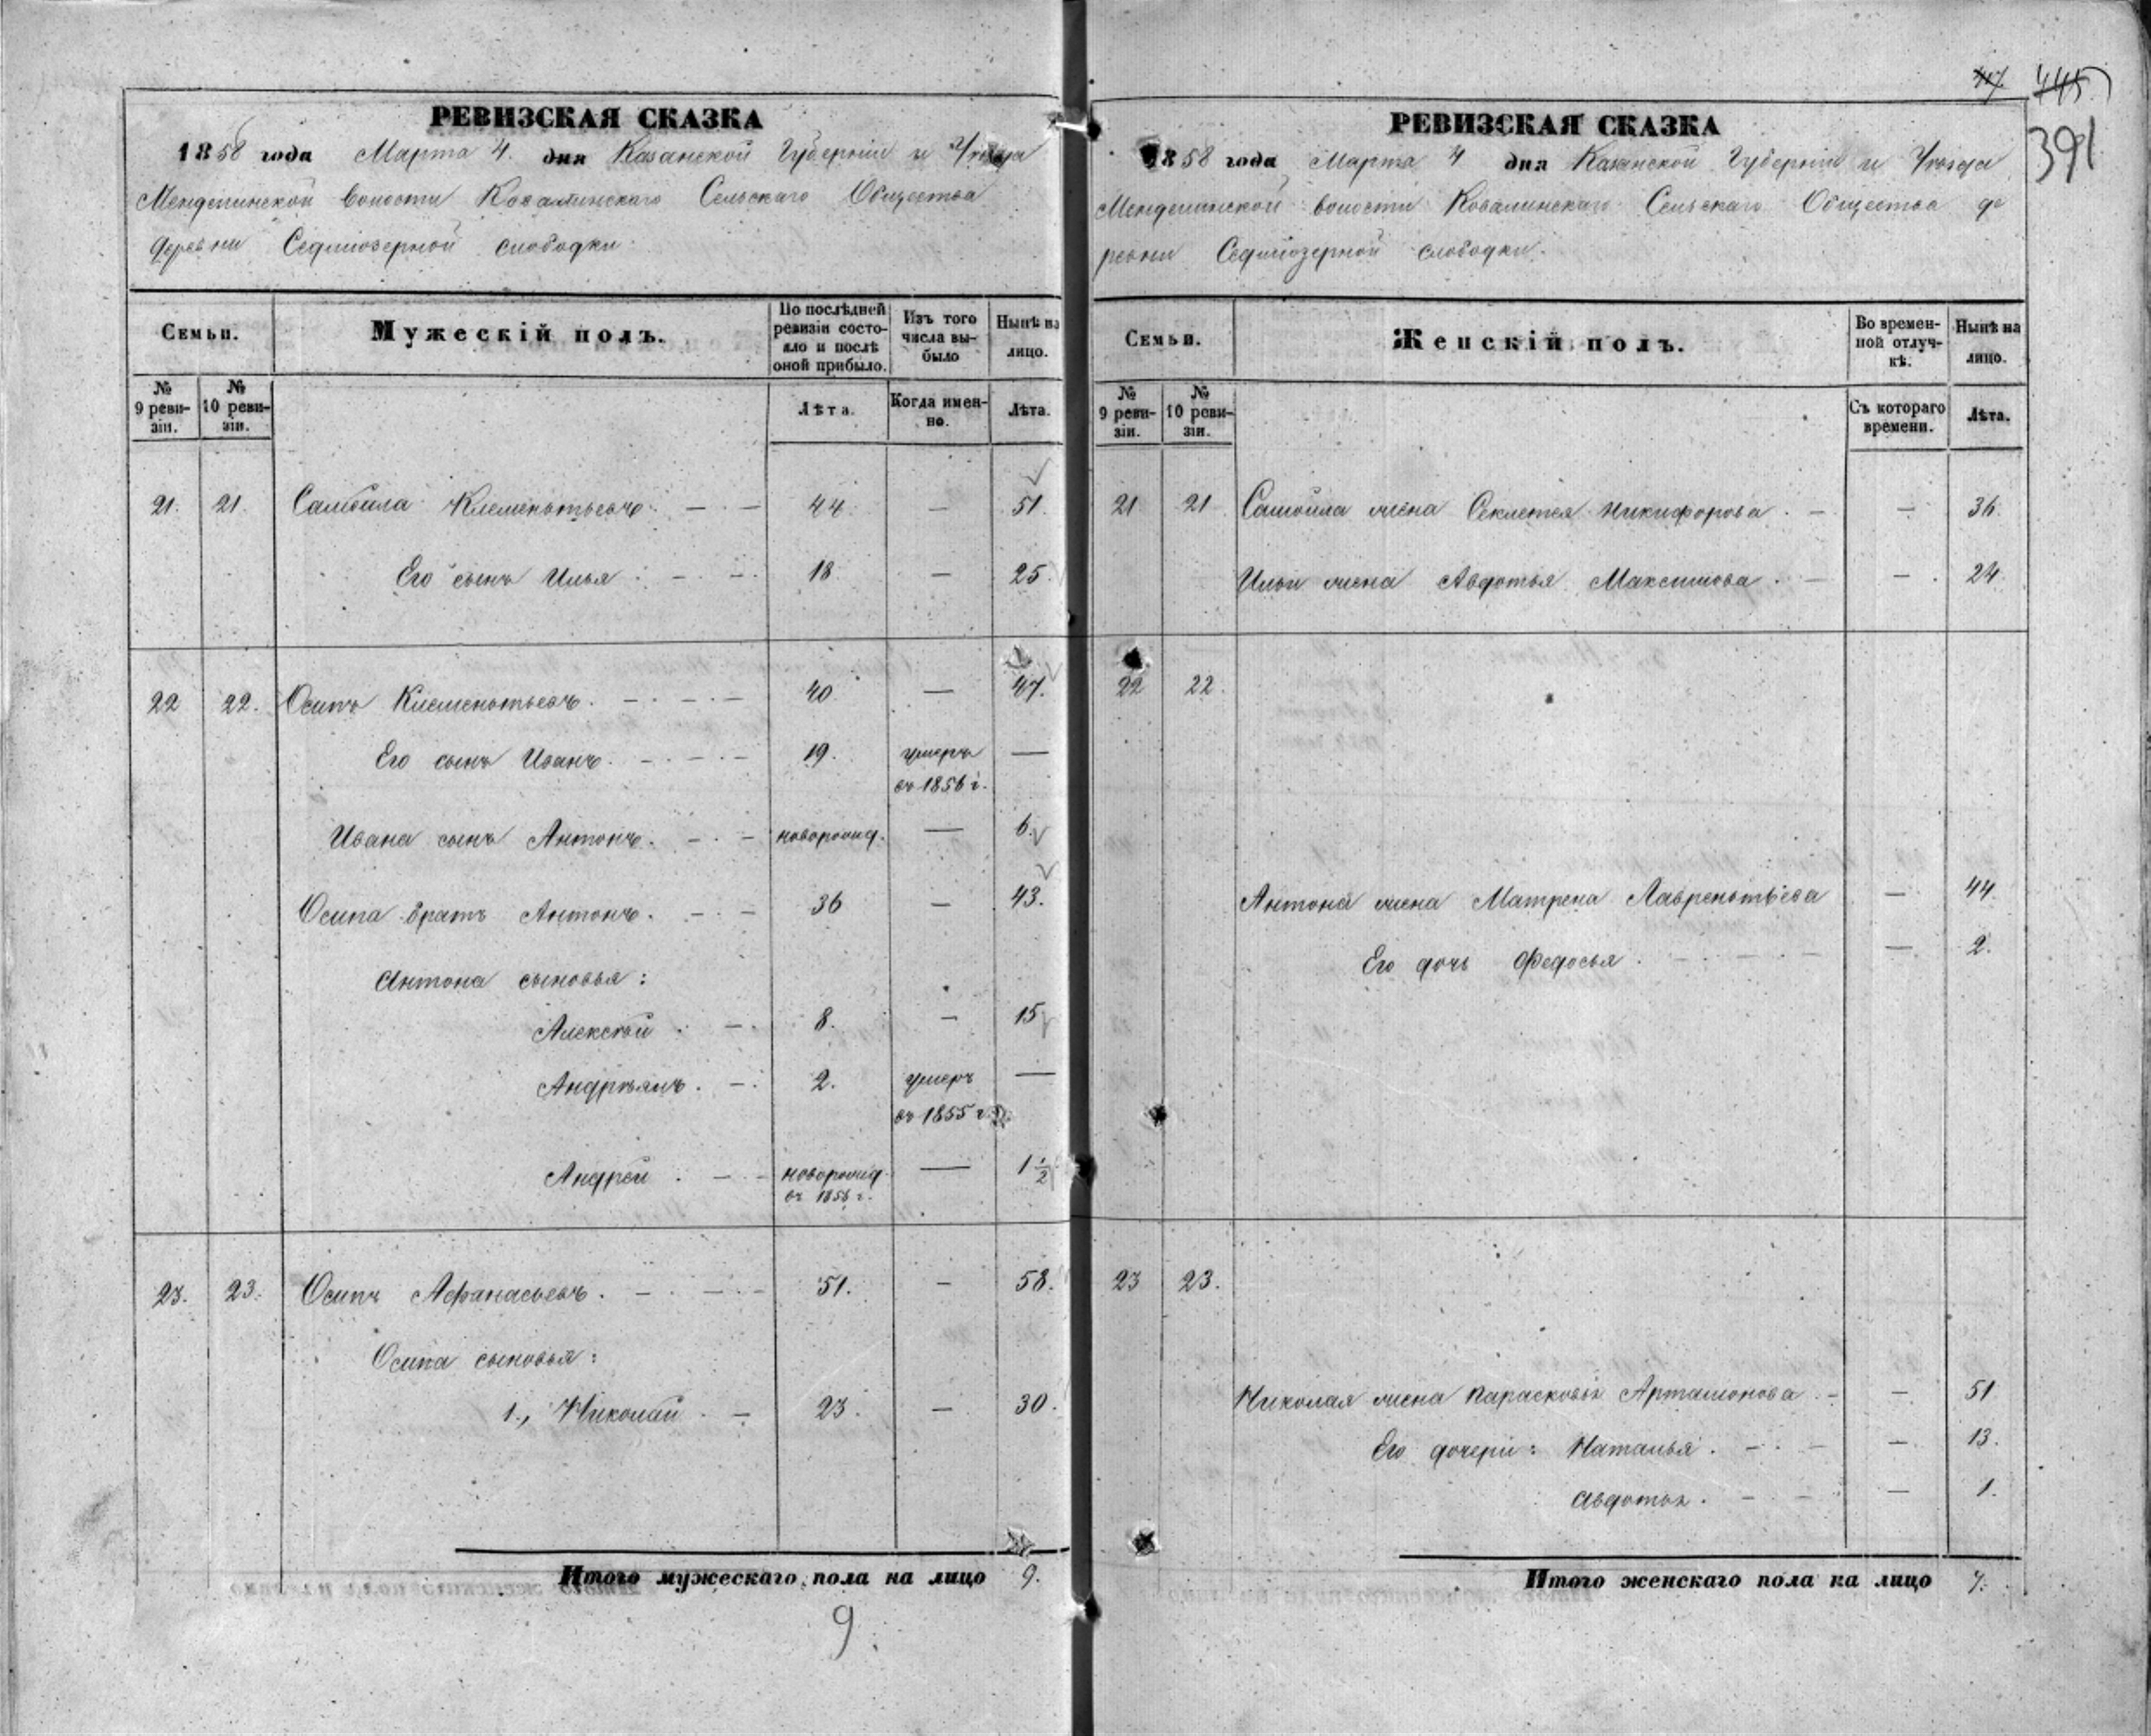 РЕВИЗСКАЯ СКАЗКА
1858 года Марта 4. дня Казанской Губерніи и Уѣзда
Менделинской волости Ковалинскаго Сельскаго Общества
деревни Седміозерной слободки.
Семьи. Мужескій полъ. По послѣдней ревизіи состояло и послѣ оной прибыло. Изъ того числа выбыло Нынѣ на лицо.
№ 9 ревизіи. № 10 ревизіи. Лѣта. Когда именно. Лѣта.
21. 21. Самойла Клементьевъ. 44 — 51.
Его сынъ Илья 18 — 25.
22 22. Осипъ Клементьевъ. 40 — 47.
Его сынъ Иванъ. 19. умеръ —
въ 1856 г.
Ивана сынъ Антонъ. новорожд. — 6.
Осипа братъ Антонъ. 36 — 43.
Антона сыновья:
Алексѣй 8. — 15
Андреянъ. 2. умеръ —
въ 1855 г.
Андрей новорожд. — 1½
въ 1856 г.
23. 23. Осипъ Афанасьевъ. 51. — 58.
Осипа сыновья:
1., Николай 23. — 30.
Итого мужескаго пола на лицо 9.
9.
445
391
РЕВИЗСКАЯ СКАЗКА
1858 года Марта 4 дня Казанской Губерніи и Уѣзда
Менделинской волости Ковалинскаго Сельскаго Общества де
ревни Седміозерной слободки.
Семьи. Женскій полъ. Во временной отлучкѣ. Нынѣ на лицо.
№ 9 ревизіи. № 10 ревизіи. Съ котораго времени. Лѣта.
21 21 Самойла жена Секлетея Никифорова. — 36.
Ильи жена Авдотья Максимова. — 24
22 22.
Антона жена Матрена Лаврентьева — 44
Его дочь Федосья. — 2.
23 23.
Николая жена Парасковья Артамонова — 51
Его дочери: Наталья. — 13.
Авдотья. — 1.
Итого женскаго пола на лицо 7.